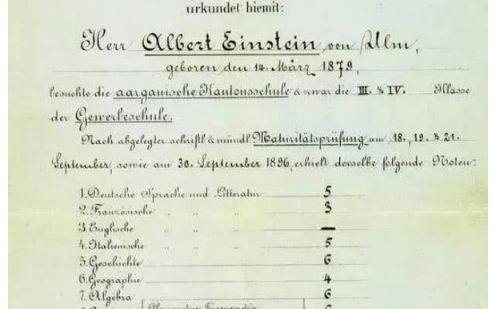 urkundet hiemit:
Herr Albert Einstein von Ulm,
geboren den 14. März 1879,
besuchte die aargauische Kantonsschule & zwar die III. & IV. Klasse
der Gewerbeschule.
Nach abgelegter schriftl. & mündl. Maturitätsprüfung am 18., 19. & 21.
September, sowie am 30. September 1896, erhielt derselbe folgende Noten:
1. Deutsche Sprache und Litteratur 5
2. Französische " " 3
3. Englische " " —
4. Italienische " " 5
5. Geschichte 6
6. Geographie 4
7. Algebra 6